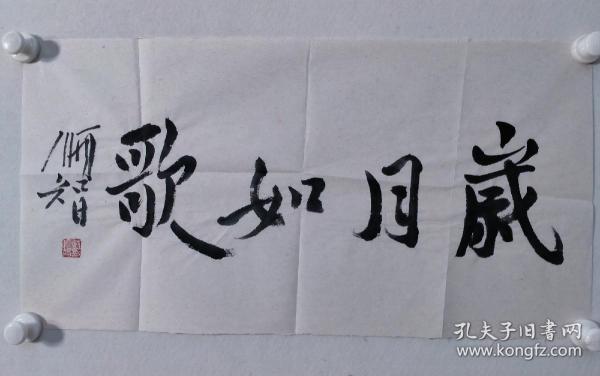 歲月如歌
智
孔夫子旧书网
www.kongfz.com